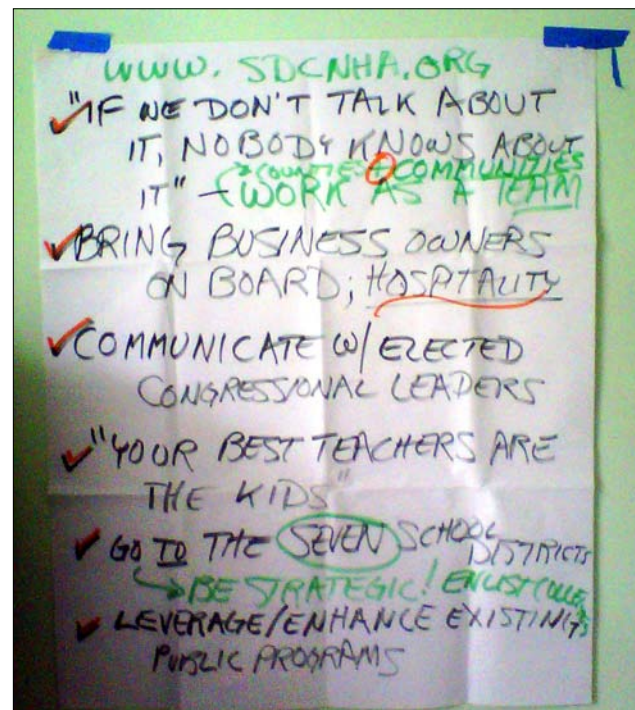 WWW. SDCNHA.ORG
"IF WE DON'T TALK ABOUT
IT, NOBODY KNOWS ABOUT
COUNTIES + COMMUNITIES
IT" - WORK AS A TEAM
BRING BUSINESS OWNERS
ON BOARD; HOSPITALITY
COMMUNICATE W/ ELECTED
CONGRESSIONAL LEADERS
"YOUR BEST TEACHERS ARE
THE KIDS"
GO TO THE SEVEN SCHOOL
DISTRICTS
BE STRATEGIC! ENLIST
LEVERAGE/ENHANCE EXISTING
PUBLIC PROGRAMS